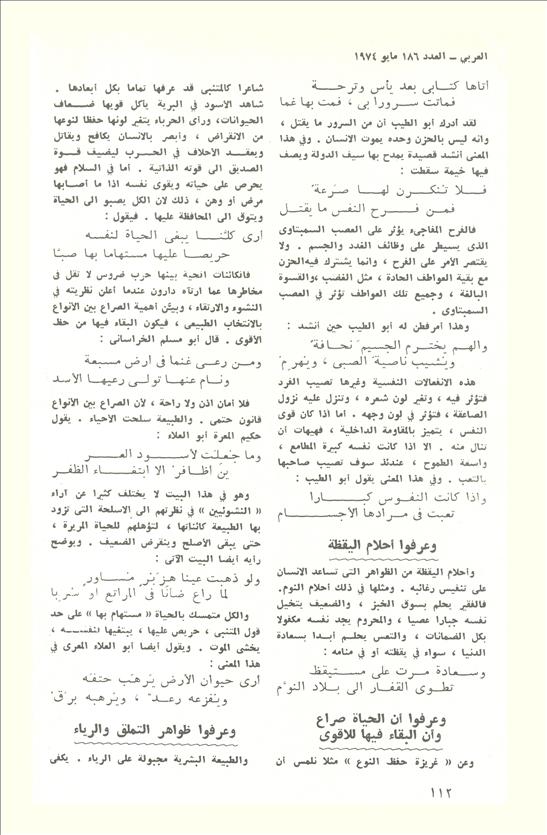 العربي ــ العدد ١٨٦ مايو ١٩٧٤
أتاها كتابى بعد يأس وترحة
فماتت سرورا بى ، فمت بها غما
لقد أدرك أبو الطيب أن من السرور ما يقتل ،
وأنه ليس بالحزن وحده يموت الانسان . وفي هذا
المعنى أنشد قصيدة يمدح بها سيف الدولة ويصف
فيها خيمة سقطت :
فلا تنكرن لها صرعة
فمن فرح النفس ما يقتل
فالفرح المفاجىء يؤثر على العصب السمبتاوى
الذى يسيطر على وظائف الغدد والجسم . ولا
يقتصر الأمر على الفرح ، وانما يشترك فيه الحزن
مع بقية العواطف الحادة ، مثل الغضب ، والقسوة
البالغة ، وجميع تلك العواطف تؤثر في العصب
السمبتاوى .
وهذا أمر فطن له أبو الطيب حين أنشد :
والهم يخترم الجسيم نحافة
ويشيب ناصية الصبى ، ويهرم
هذه الانفعالات النفسية وغيرها تصيب الفرد
فتؤثر فيه ، وتغير لون شعره ، وتنزل عليه نزول
الصاعقة ، فتؤثر في لون وجهه . أما اذا كان قوى
النفس ، يتميز بالمقاومة الداخلية ، فهيهات أن
تنال منه . الا اذا كانت نفسه كبيرة المطامع ،
واسعة الطموح ، عندئذ سوف تصيب صاحبها
بالتعب . وفي هذا المعنى يقول أبو الطيب :
واذا كانت النفوس كبارا
تعبت فى مرادها الأجسام
وعرفوا أحلام اليقظة
وأحلام اليقظة من الظواهر التى تساعد الانسان
على تنفيس رغائبه . ومثلها في ذلك أحلام النوم.
فالفقير يحلم بسوق الخبز ، والضعيف يتخيل
نفسه جبارا عصيا ، والمحروم يجد نفسه مكفولا
بكل الضمانات ، والتعس يحلم أبدا بسعادة
الدنيا ، سواء في يقظته أو في منامه :
وسعادة مرت على مستيقظ
تطوى القفار الى بلاد النوم
وعرفوا أن الحياة صراع
وأن البقاء فيها للأقوى
وعن « غريزة حفظ النوع » مثلا نلمس أن
شاعرا كالمتنبى قد عرفها تماما بكل أبعادها .
شاهد الأسود في البرية يأكل قويها ضعاف
الحيوانات، ورأى الحرباء يتغير لونها حفظا لنوعها
من الانقراض ، وأبصر بالانسان يكافح ويقاتل
ويعقد الأحلاف في الحرب ليضيف قوة
الصديق الى قوته الذاتية . أما في السلام فهو
يحرص على حياته ويقوى نفسه اذا ما أصابها
مرض أو وهن ، ذلك لان الكل يصبو الى الحياة
ويتوق الى المحافظة عليها . فيقول :
أرى كلنا يبغى الحياة لنفسه
حريصا عليها مستهاما بها صبا
فالكائنات الحية بينها حرب ضروس لا تقل فى
مخاطرها عما ارتآه دارون عندما أعلن نظريته في
النشوء والارتقاء ، وبين أهمية الصراع بين الأنواع
بالانتخاب الطبيعى ، فيكون البقاء فيها من حظ
الأقوى . قال أبو مسلم الخراسانى :
ومن رعى غنما فى أرض مسبعة
ونام عنها تولى رعيها الأسد
فلا أمان اذن ولا راحة ، لأن الصراع بين الأنواع
قانون حتمى . والطبيعة سلحت الأحياء . يقول
حكيم المعرة أبو العلاء :
وما جعلت لأسود العر
ين أظافر الا ابتغاء الظفر
وهو في هذا البيت لا يختلف كثيرا عن آراء
« النشوئيين » في نظرتهم الى الأسلحة التى تزود
بها الطبيعة كائناتها ، لتؤهلهم للحياة المريرة ،
حتى يبقى الأصلح وينقرض الضعيف . ويوضح
رأيه أيضا البيت الآتى :
ولو ذهبت عينا هزبر مساور
لما راع ضأنا فى المراتع أو سربا
والكل متمسك بالحياة « مستهام بها » على حد
قول المتنبى ، حريص عليها ، يبتغيها لنفسه ،
يخشى الموت . ويقول أيضا أبو العلاء المعرى في
هذا المعنى :
أرى حيوان الأرض يرهب حتفه
ويفزعه رعد ، ويرهبه برق
وعرفوا ظواهر التملق والرياء
والطبيعة البشرية مجبولة على الرياء . يكفى
١١٢